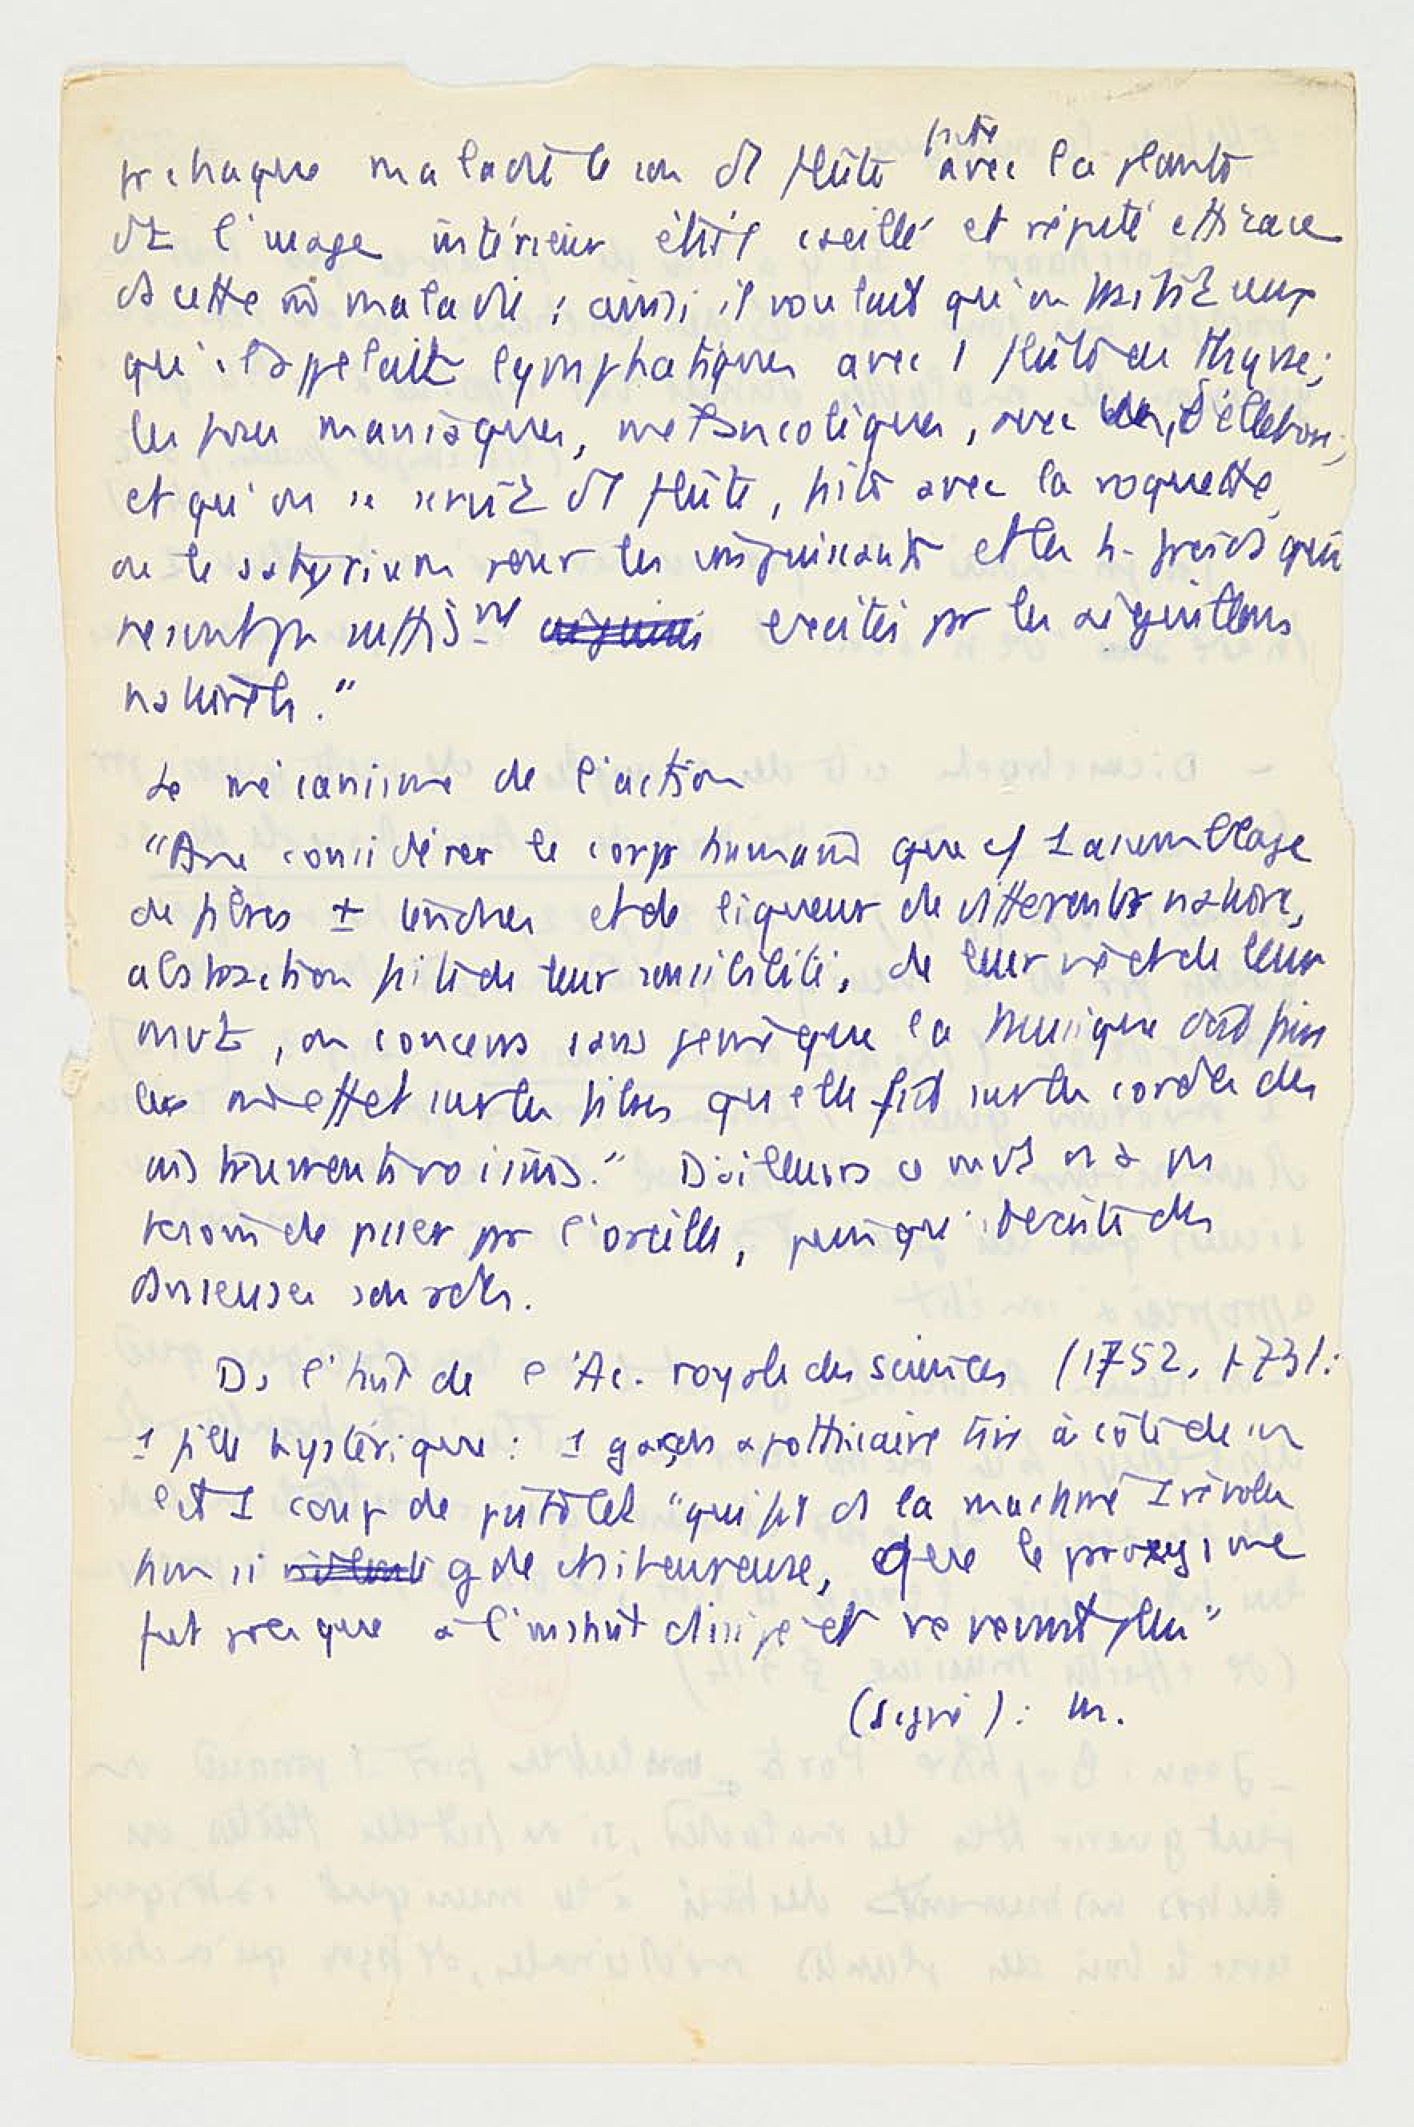 pr chaque maladie le son d'1 flûte faite avec la plante
dt l'usage intérieur était cseillé et réputé efficace
ds cette m maladie ; ainsi il voulait qu'on traitât ceux
qu'il appelait lymphatiques avec 1 flûte de thyrse ;
les fous maniaques, mélancoliques, avec d'ellebore ;
et qu'on se servît d'1 flûte, faite avec la roquette,
ou le satyrium pour les impuissants et les h. froids qui
ne sont pas suffist excités pr les aiguillons
naturels."
Le mécanisme de l'action
"A ne considérer le corps humain que cf 1 assemblage
de fibres ± tendues et de liqueur de differentes nature,
abstraction faite de leur sensibilité, de leur vie et de leur
mvt, on concevra sans peine que la Musique doit faire
le m effet sur les fibres qu'elle fait sur les cordes des
instruments voisins." D'ailleurs ce mvt n'a pas
besoin de passer pr l'oreille, puisqu'
saches.
Ds l'hist de l'Ac. royale des sciences (1752, p 73) :
1 fille hystérique : 1 garçon apothicaire tire à côté de son
lit 1 coup de pistolet "qui fit ds la machine 1 révolu
tion si gde et si heureuse, que le paroxysme
fut presque à l'instant dissipé et ne revint plus"
(signé) : M.